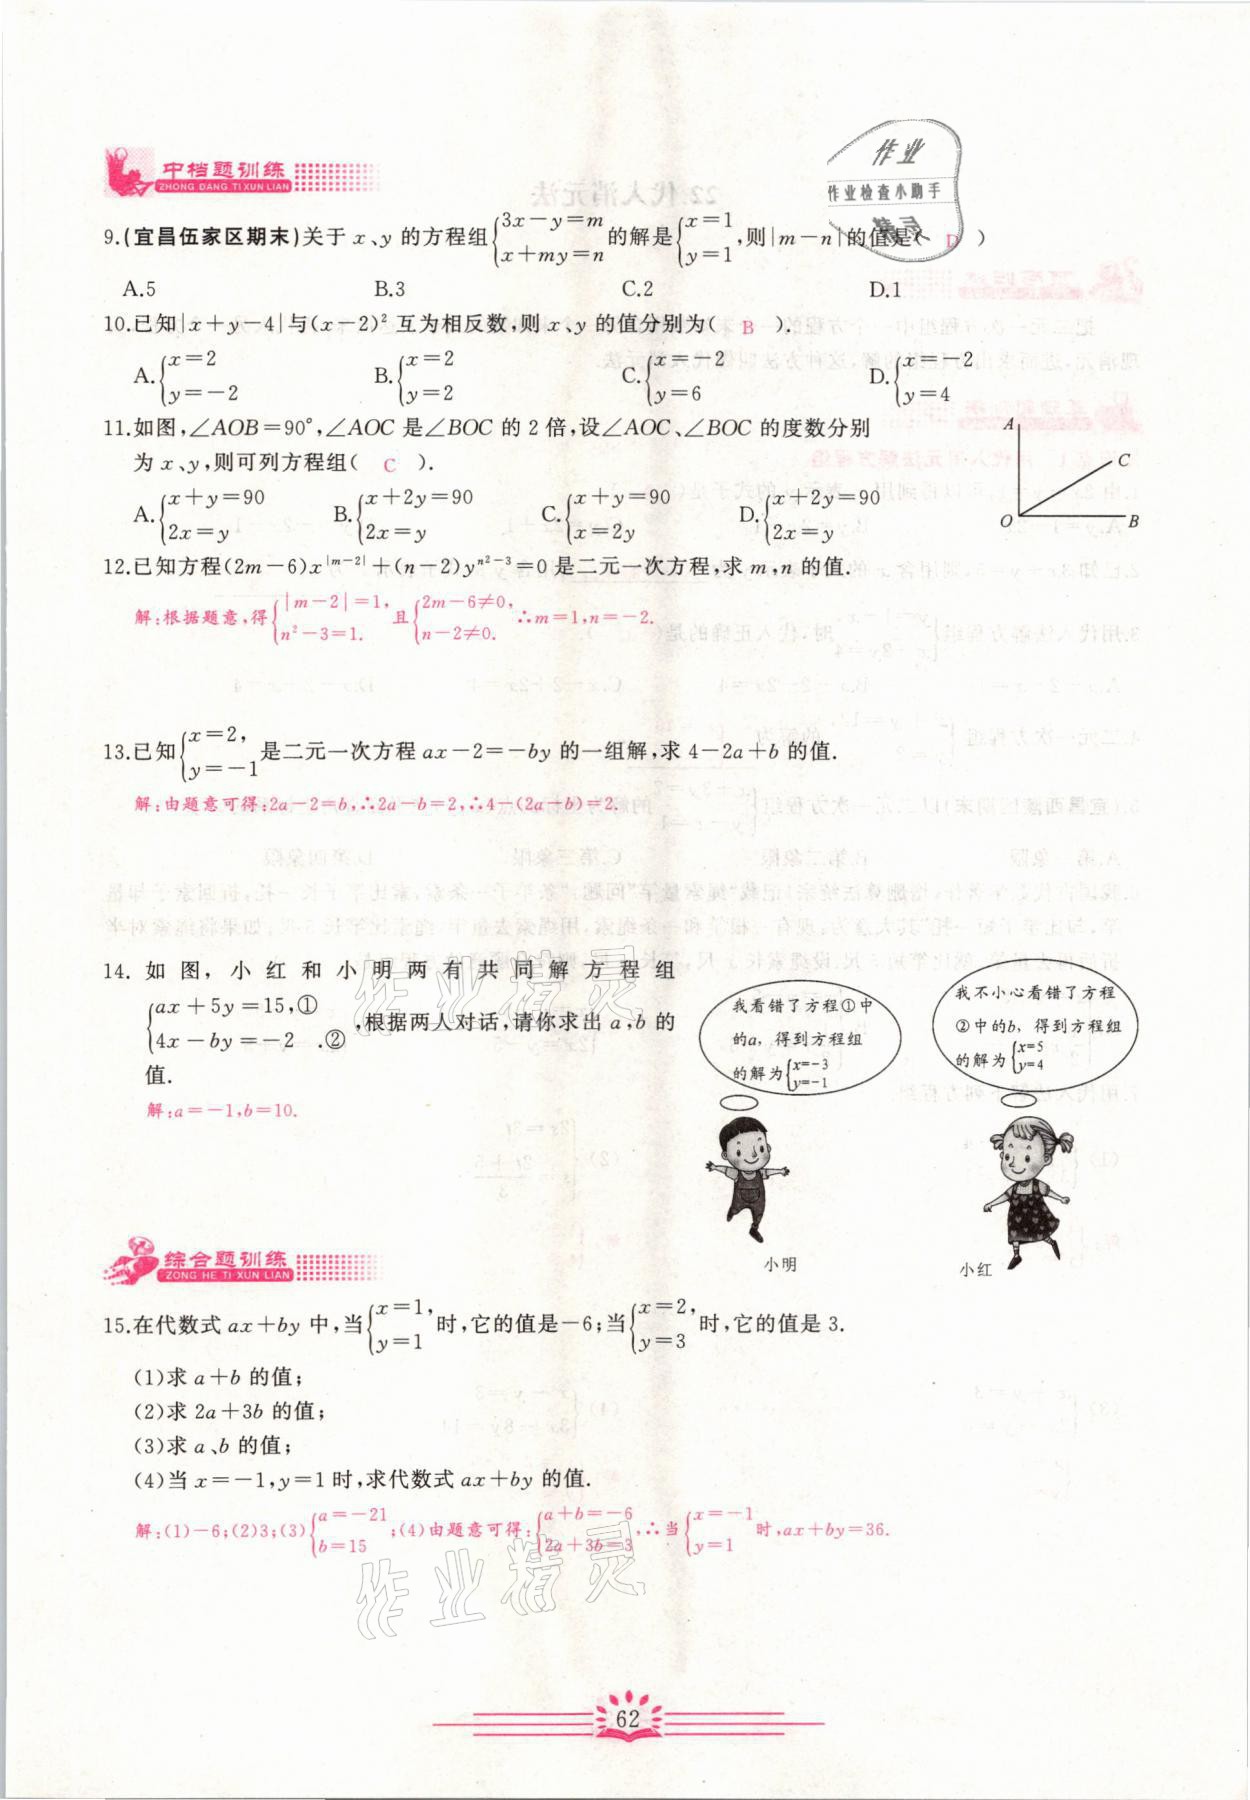 中档题训练
ZHONG DANG TI XUN LIAN
作业
作业检查小助手
9.(宜昌伍家区期末)关于 x、y 的方程组{3x-y=m, x+my=n 的解是{x=1, y=1,则|m-n|的值是( D )
A.5 B.3 C.2 D.1
10.已知|x+y-4|与(x-2)² 互为相反数,则 x、y 的值分别为( B ).
A.{x=2, y=-2 B.{x=2, y=2 C.{x=-2, y=6 D.{x=-2, y=4
11.如图,∠AOB=90°,∠AOC 是∠BOC 的 2 倍,设∠AOC、∠BOC 的度数分别
为 x、y,则可列方程组( C ).
A.{x+y=90, 2x=y B.{x+2y=90, 2x=y C.{x+y=90, x=2y D.{x+2y=90, 2x=y
A
C
O B
12.已知方程(2m-6)x^{|m-2|}+(n-2)y^{n²-3}=0是二元一次方程,求 m,n 的值.
解:根据题意,得{|m-2|=1, n²-3=1. 且{2m-6≠0, n-2≠0. ∴m=1,n=-2.
13.已知{x=2, y=-1 是二元一次方程 ax-2=-by 的一组解,求 4-2a+b 的值.
解:由题意可得:2a-2=b,∴2a-b=2,∴4-(2a+b)=2.
14. 如图,小红和小明两有共同解方程组
{ax+5y=15,① 4x-by=-2 .② ,根据两人对话,请你求出 a,b 的
值.
解:a=-1,b=10.
我看错了方程①中
的a, 得到方程组
的解为{x=-3 y=-1
我不小心看错了方程
②中的b, 得到方程组
的解为{x=5 y=4
小明
小红
综合题训练
ZONG HE TI XUN LIAN
15.在代数式 ax+by 中,当{x=1, y=1 时,它的值是-6;当{x=2, y=3 时,它的值是 3.
(1)求 a+b 的值;
(2)求 2a+3b 的值;
(3)求 a、b 的值;
(4)当 x=-1,y=1 时,求代数式 ax+by 的值.
解:(1)-6;(2)3;(3){a=-21 b=15 ;(4)由题意可得:{a+b=-6 2a+3b=3 ,∴当{x=-1 y=1 时,ax+by=36.
作业精灵
作业精灵
62